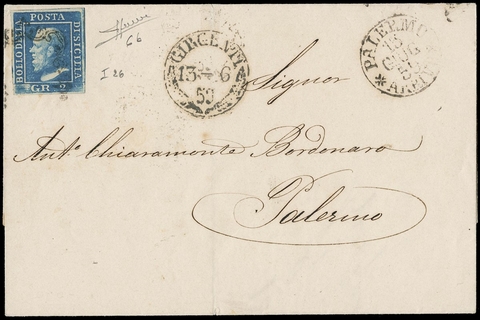 BOLLO DELLA
POSTA
DI SICILIA
GR. 2
66
I 26
GIRGENTI
13 6
59
PALERMO
13
ARRIVO
Signor
Ant.º Chiaramonte Bordonaro
Palermo